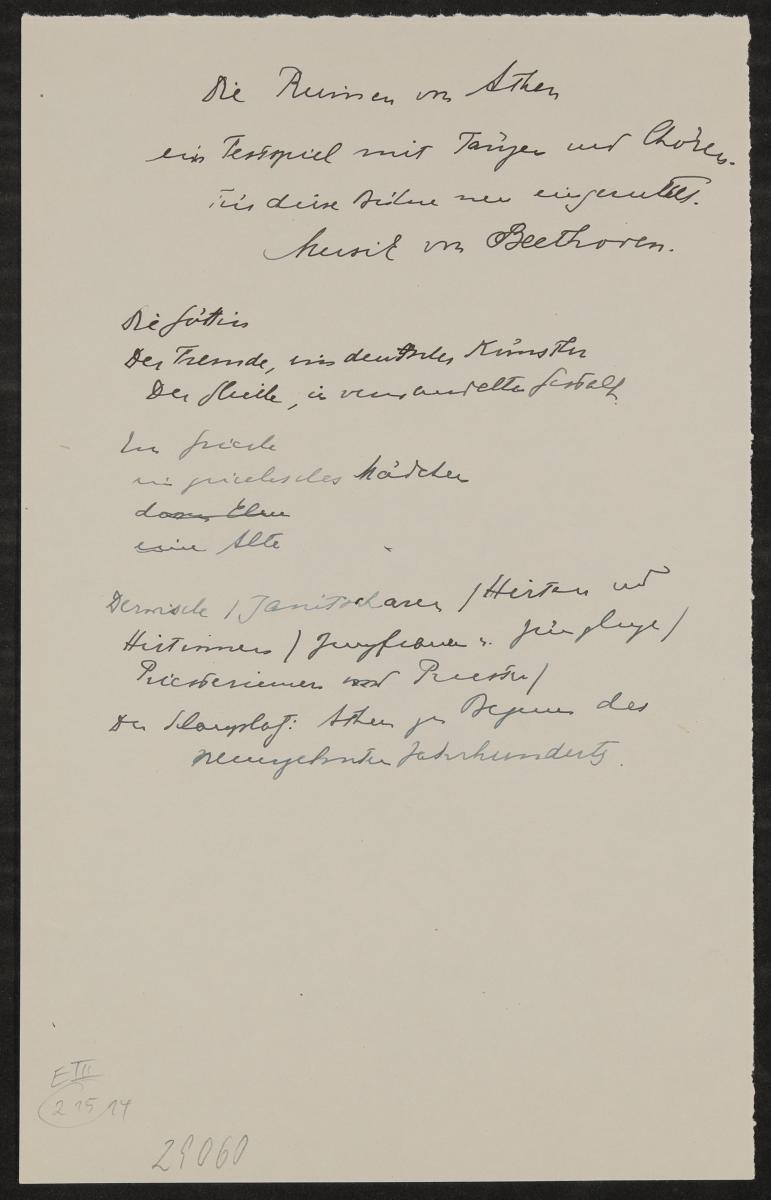 Die Ruinen von Athen
ein Festspiel mit Tänzen und Chören.
Für diese Bühne neu eingerichtet.
Musik von Beethoven.
Die Göttin
Der Fremde, ein deutscher Künstler
Der Gleiche, in verwandelter Gestalt.
Ein Grieche
ein griechisches Mädchen
deren Eltern
eine Alte
Derwische / Janitscharen / Hirten und
Hirtinnen / Jungfrauen u. Jünglinge /
Priesterinnen und Priester /
Der Schauplatz: Athen zu Beginn des
neunzehnten Jahrhunderts.
E III
215 14
29060